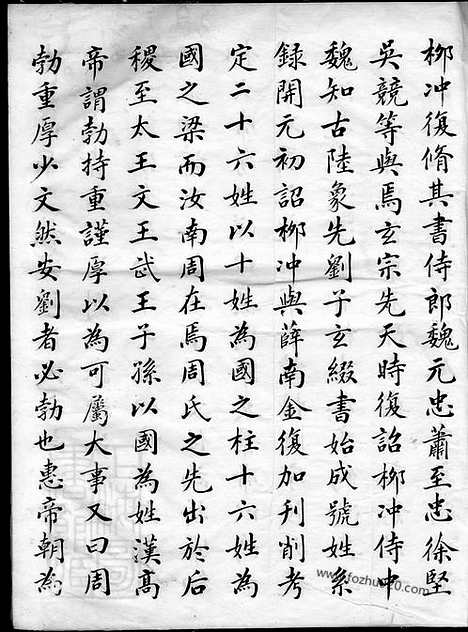 柳冲復脩其書侍郎魏元忠蕭至忠徐堅
吳競等與焉玄宗先天時復詔柳冲侍中
魏知古陸象先劉子玄綴書始成號姓系
錄開元初詔柳冲與薛南金復加刋削考
定二十六姓以十姓為國之柱十六姓為
國之梁而汝南周在焉周氏之先出於后
稷至太王文王武王子孫以國為姓漢高
帝謂勃持重謹厚以為可屬大事又曰周
勃重厚少文然安劉者必勃也惠帝朝為
www.fozhu920.com